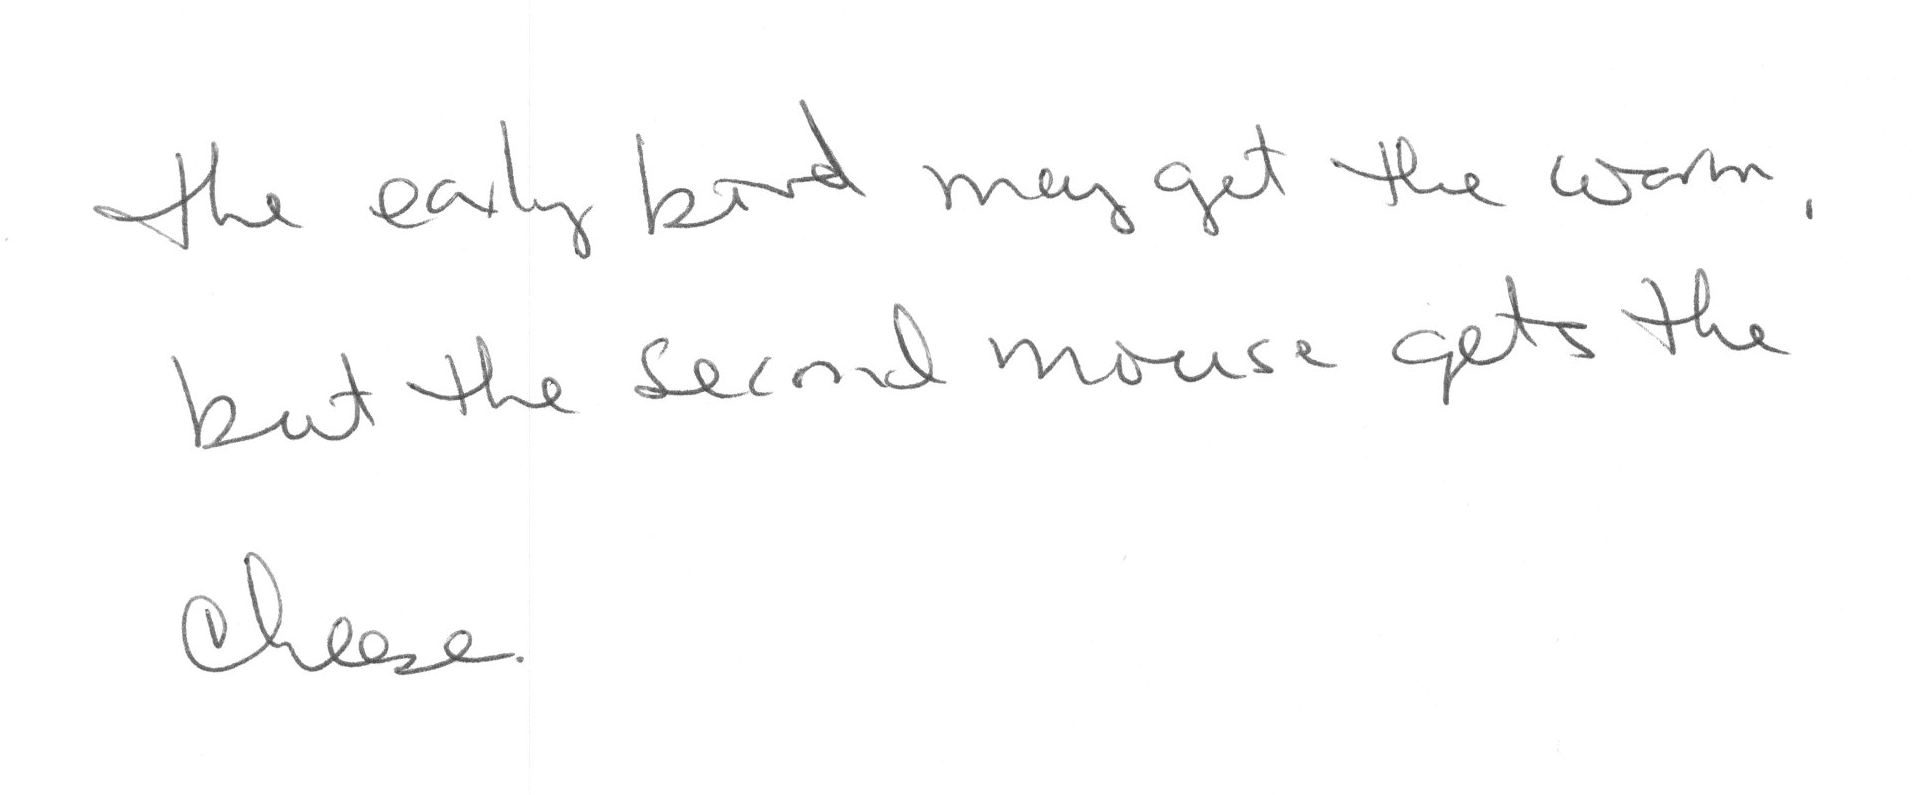 the early bird may get the worm,
but the second mouse gets the
cheese.